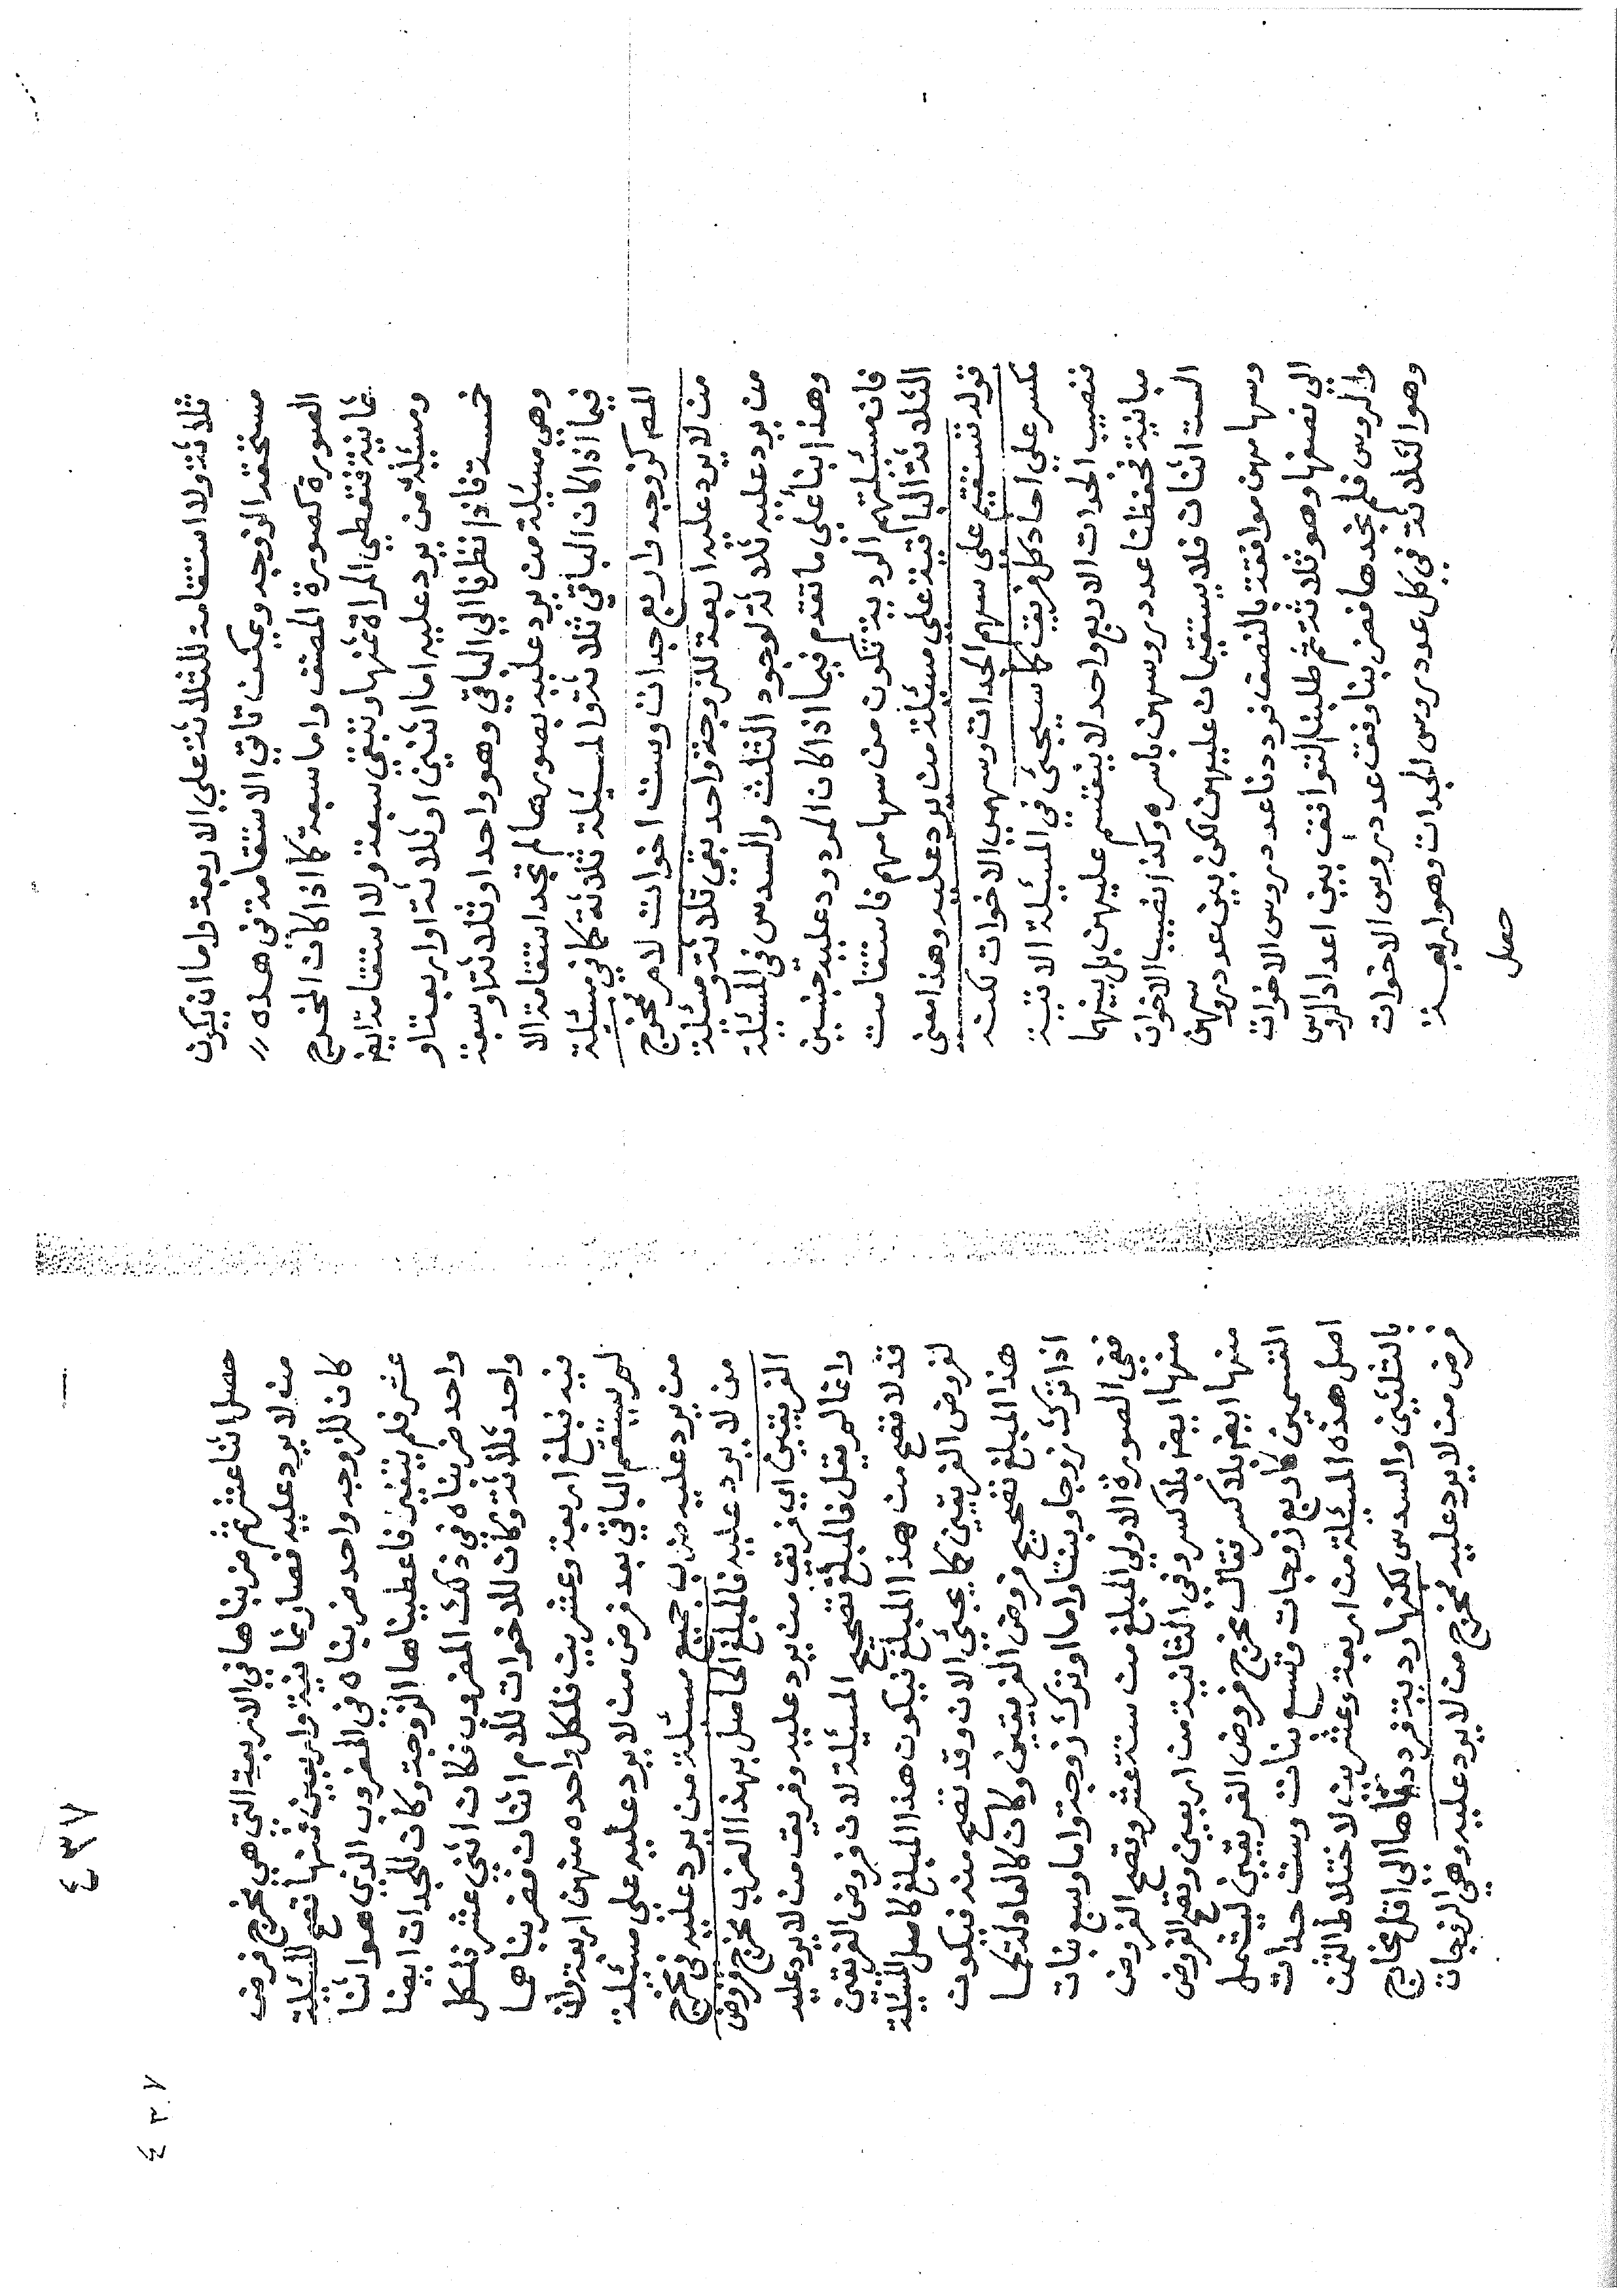 ثلاثة ولا استقامة للثلاثة علي الاربعة واما ان يكون
مستحقه الزوجه ويمكن تاتي الاستقامة في هذه //
الصورة كصورة المصنف واما سبعة كما اذا كان المخرج
ثمانية فتعطي المراة ثمنها وتبقي سبعة ولا استقامة ايض
ومسئلة من يرد عليه اما اثنين او ثلاثة او اربعة او
خمسة فاذا نظرنا الي الباقي وهو واحد او ثلاثة او سبعة
وهي مسئلة من يرد عليه بصورها لم تجد استقامة الا
فيما اذا كان الباقي ثلاثة والمسئلة ثلاثة كما في مسئلة
المص كزوجه واربع جدات وست اخوات لام مخرج
من لا يرد عليه اربعة للزوجة واحد بقي ثلاثة ومسئلة
من يرد عليه ثلاثة لوجود الثلث والسدس في المسئلة
وهذا بناء علي ما تقدم فيما اذا كان المردود عليه جنسين
فان مسئلتهم الردية تكون من سهامهم فاستقامت
الثلاثة الباقية علي مسئلة من يرد عليه وهذا معني
قوله تستقيم علي سهم الجدات وسهمي الاخوات لكنه
مكسر علي احاد كل فريق كما سيجئ في المسئلة الاتية
فنصيب الجدات الاربع واحد لا ينقسم عليهن بل بينهما
مباينة فحفظنا عدد روسهن باسره وكذا نصيب الاخوات
الست اثنان فلا يستقيمان عليهن لكن بين عدد روسهن
وسهامهن موافقة بالنصف فرددنا عدد روس الاخوات
الي نصفها وهو ثلاثة ثم طلبنا التوافق بين اعداد الروس
والروس فلم نجدها فضربنا وفق عدد روس الاخوات
وهو الثلاثة في كل عدد روس الجدات وهو اربعة
حصل
٤٣٧
٤٣٧
حصل اثنا عشر ثم ضربناها في الاربعة التي هي مخرج فرض
من لا يرد عليه فصار ثمانية واربعين منها تصح المسئلة
كان للزوجه واحد ضربناه في المضروب الذي هو اثنا
عشر فلم يتغير فاعطيناها الزوجة وكان للجدات ايضا
واحد ضربناه في ذلك المضروب فكان اثني عشر فلكل
واحد ثلاثة وكان للاخوات للام اثنان فضربناهما
فيه فبلغ اربعة وعشرين فلكل واحده منهن اربعة وان
لم يستقم الباقي بعد فرض من لا يرد عليه علي مسئلة
من يرد عليه ضرب جميع مسئلة من يرد عليه في مخرج
من لا يرد عليه فالمبلغ الحاصل بهذا الضرب مخرج فروض
الفريقين اي فريق من يرد عليه وفريق من لا يرد عليه
وانما لم يقل فالمبلغ تصحيح المسئلة لان فروض الفريقين
قد لا تصح من هذا المبلغ فيكون هذا المبلغ كاصل المسئلة
لفروض الفريقين كما يجئ الان وقد تصح منه فيكون
هذا المبلغ تصحيح فروض الفريقين وكان كالعادلة كما
اذا ترك زوجا وبنتا واما او ترك زوجة واما وسبع بنات
ففي الصورة الاولي المبلغ من ستة عشر وتصح الفروض
منها ايض بلا كسر وفي الثانية من اربعين وتصح الفروض
منها ايض بلا كسر فقال مخرج فروض الفريقين ليشمل
القسمين كاربع زوجات وتسع بنات وست جدات
اصل هذه المسئلة من اربعة وعشرين لاختلاط الثمن
بالثلثين والسدس لكنها ردية فرددناها الي اقل مخارج
فرض من لا يرد عليه مخرج من لا يرد عليه وهي الزوجات